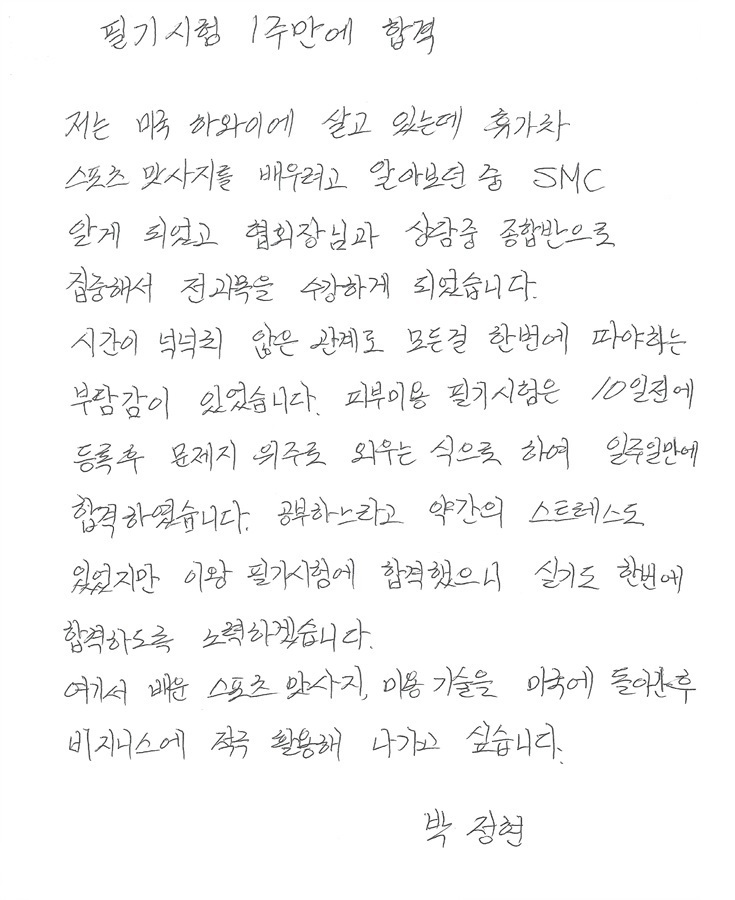 필기시험 1주만에 합격
저는 미국 하와이에 살고 있는데 휴가차
스포츠 맛사지를 배우려고 알아보던 중 SMC
알게 되었고 협회장님과 상담중 종합반으로
집중해서 전과목을 수강하게 되었습니다.
시간이 넉넉치 않은 관계로 모든걸 한번에 따야하는
부담감이 있었습니다. 피부미용 필기시험은 10일전에
등록후 문제지 위주로 외우는 식으로 하여 일주일만에
합격하였습니다. 공부하느라고 약간의 스트레스도
있었지만 이왕 필기시험에 합격했으니 실기도 한번에
합격하도록 노력하겠습니다.
여기서 배운 스포츠 맛사지, 미용 기술을 미국에 돌아간후
비지니스에 적극 활용해 나가고 싶습니다.
박 정현